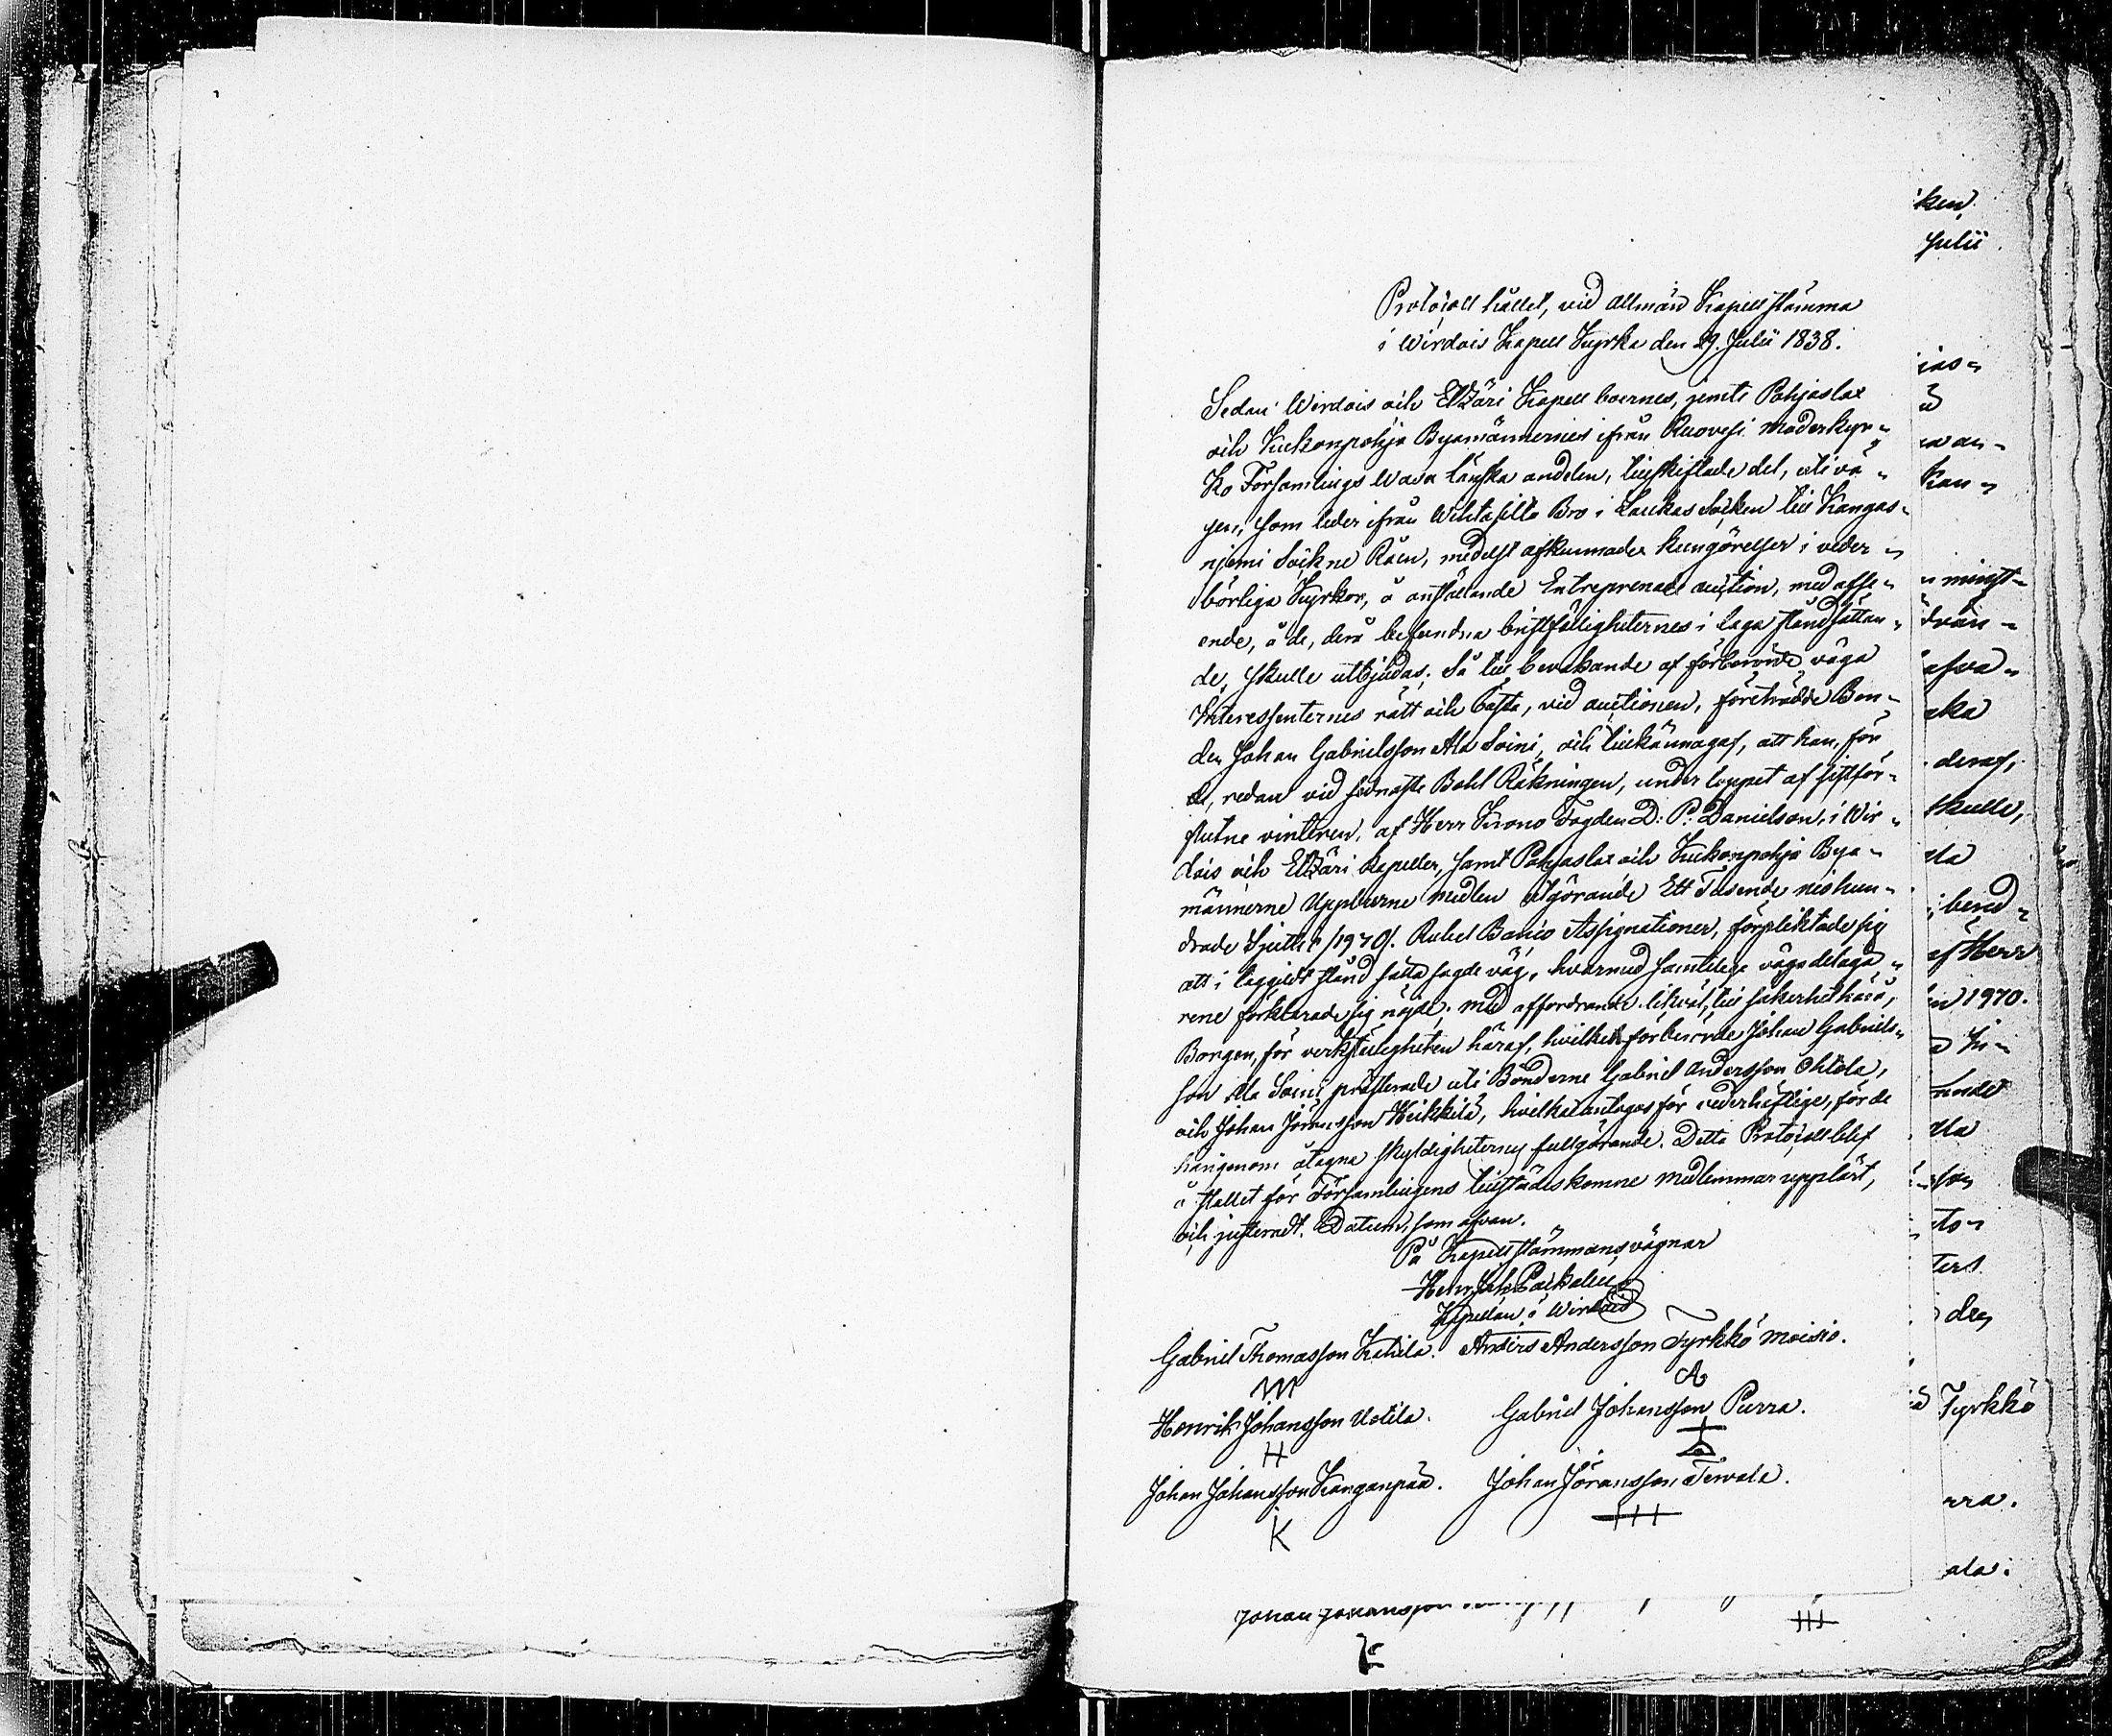 Protocoll hållet, vid allmän Kapell stämma
i Wirdois Kapell Kyrka den 29. Julii 1838.
Sedan Wirdois och Etzäri Kapell boernes, jemte Pohjaslax
och Kuckonpohja Byamännernes ifrån Ruovesi Moderkyr-
ko Församlings Wasa länska andelen, tillskiftade del, uti vä-
gen, som leder ifrån Wehtasilta Bro i Laukas Socken till Kangas-
njemi Sockne Råen, medelst afkunnade kungörelser i veder-
börliga Kyrkor, å anställande Entreprenade auction, med affse-
ende, å de, derå befundna bristfälligheternes i laga ståndsättan-
de, skulle utbjudas; Så till bevakande af förberörde väga
Interessenternes rätt och bästa, vid auctionen, företrädde Bon-
den Johan Gabrielsson Ala Soini, och tillkännagaf, att han, för
de, redan vid sednaste Bohl Räkningen, under loppet af sistför-
flutne vinteren, af Herr Krono Fogden D: P: Danielson, i Wir-
dois och Etzäri Kapeller, samt Pohjaslax och Kuckonpohja Bya-
männerne Uppburne medlen utgörande Ett Tusende niohun-
drade Sjuttio /1970/. Rubel Banco Assignationer, förpliktade sig
att i laggildt stånd sätta sagde väg, hvarmed samtelige vägadelaga-
rene förklarade sig nöjde; med affordrande likväl, till säkerhet härå,
Borgen, för verkställigheten häraf, hvilket förberörde Johan Gabriels-
son Ala Soini presterade uti Bönderne Gabriel Andersson Ohtola,
och Johan Jöransson Heikkilä, hvilka antagas för vederhäftige, för de
härigenom åtagna skyldigheternes fullgörande. Detta Protocoll blef
å stället för Församlingens tillstädeskomne medlemmar uppläst,
och justeradt. Datum, som ofvan.
På Kapell stämmans vägnar
Henr. Joh.
Kapellan i Wirdois
Gabriel Thomasson Katila. Anders Andersson Tyrkkö moisio.
M A
Henrik Johansson Uotila. Gabriel Johansson Purra.
H
Johan Johansson Kanganpää. Johan Jöransson Terwala.
K
Johan Johansson
ken,
Julii
jas-
d
wa an-
kan-
minst-
drän-
afva-
aka
deraf,
skulle,
la
bered-
af Herr
1970.
nde
lla
son
to-
ters
dra
Tyrkkö
rra.
ala.